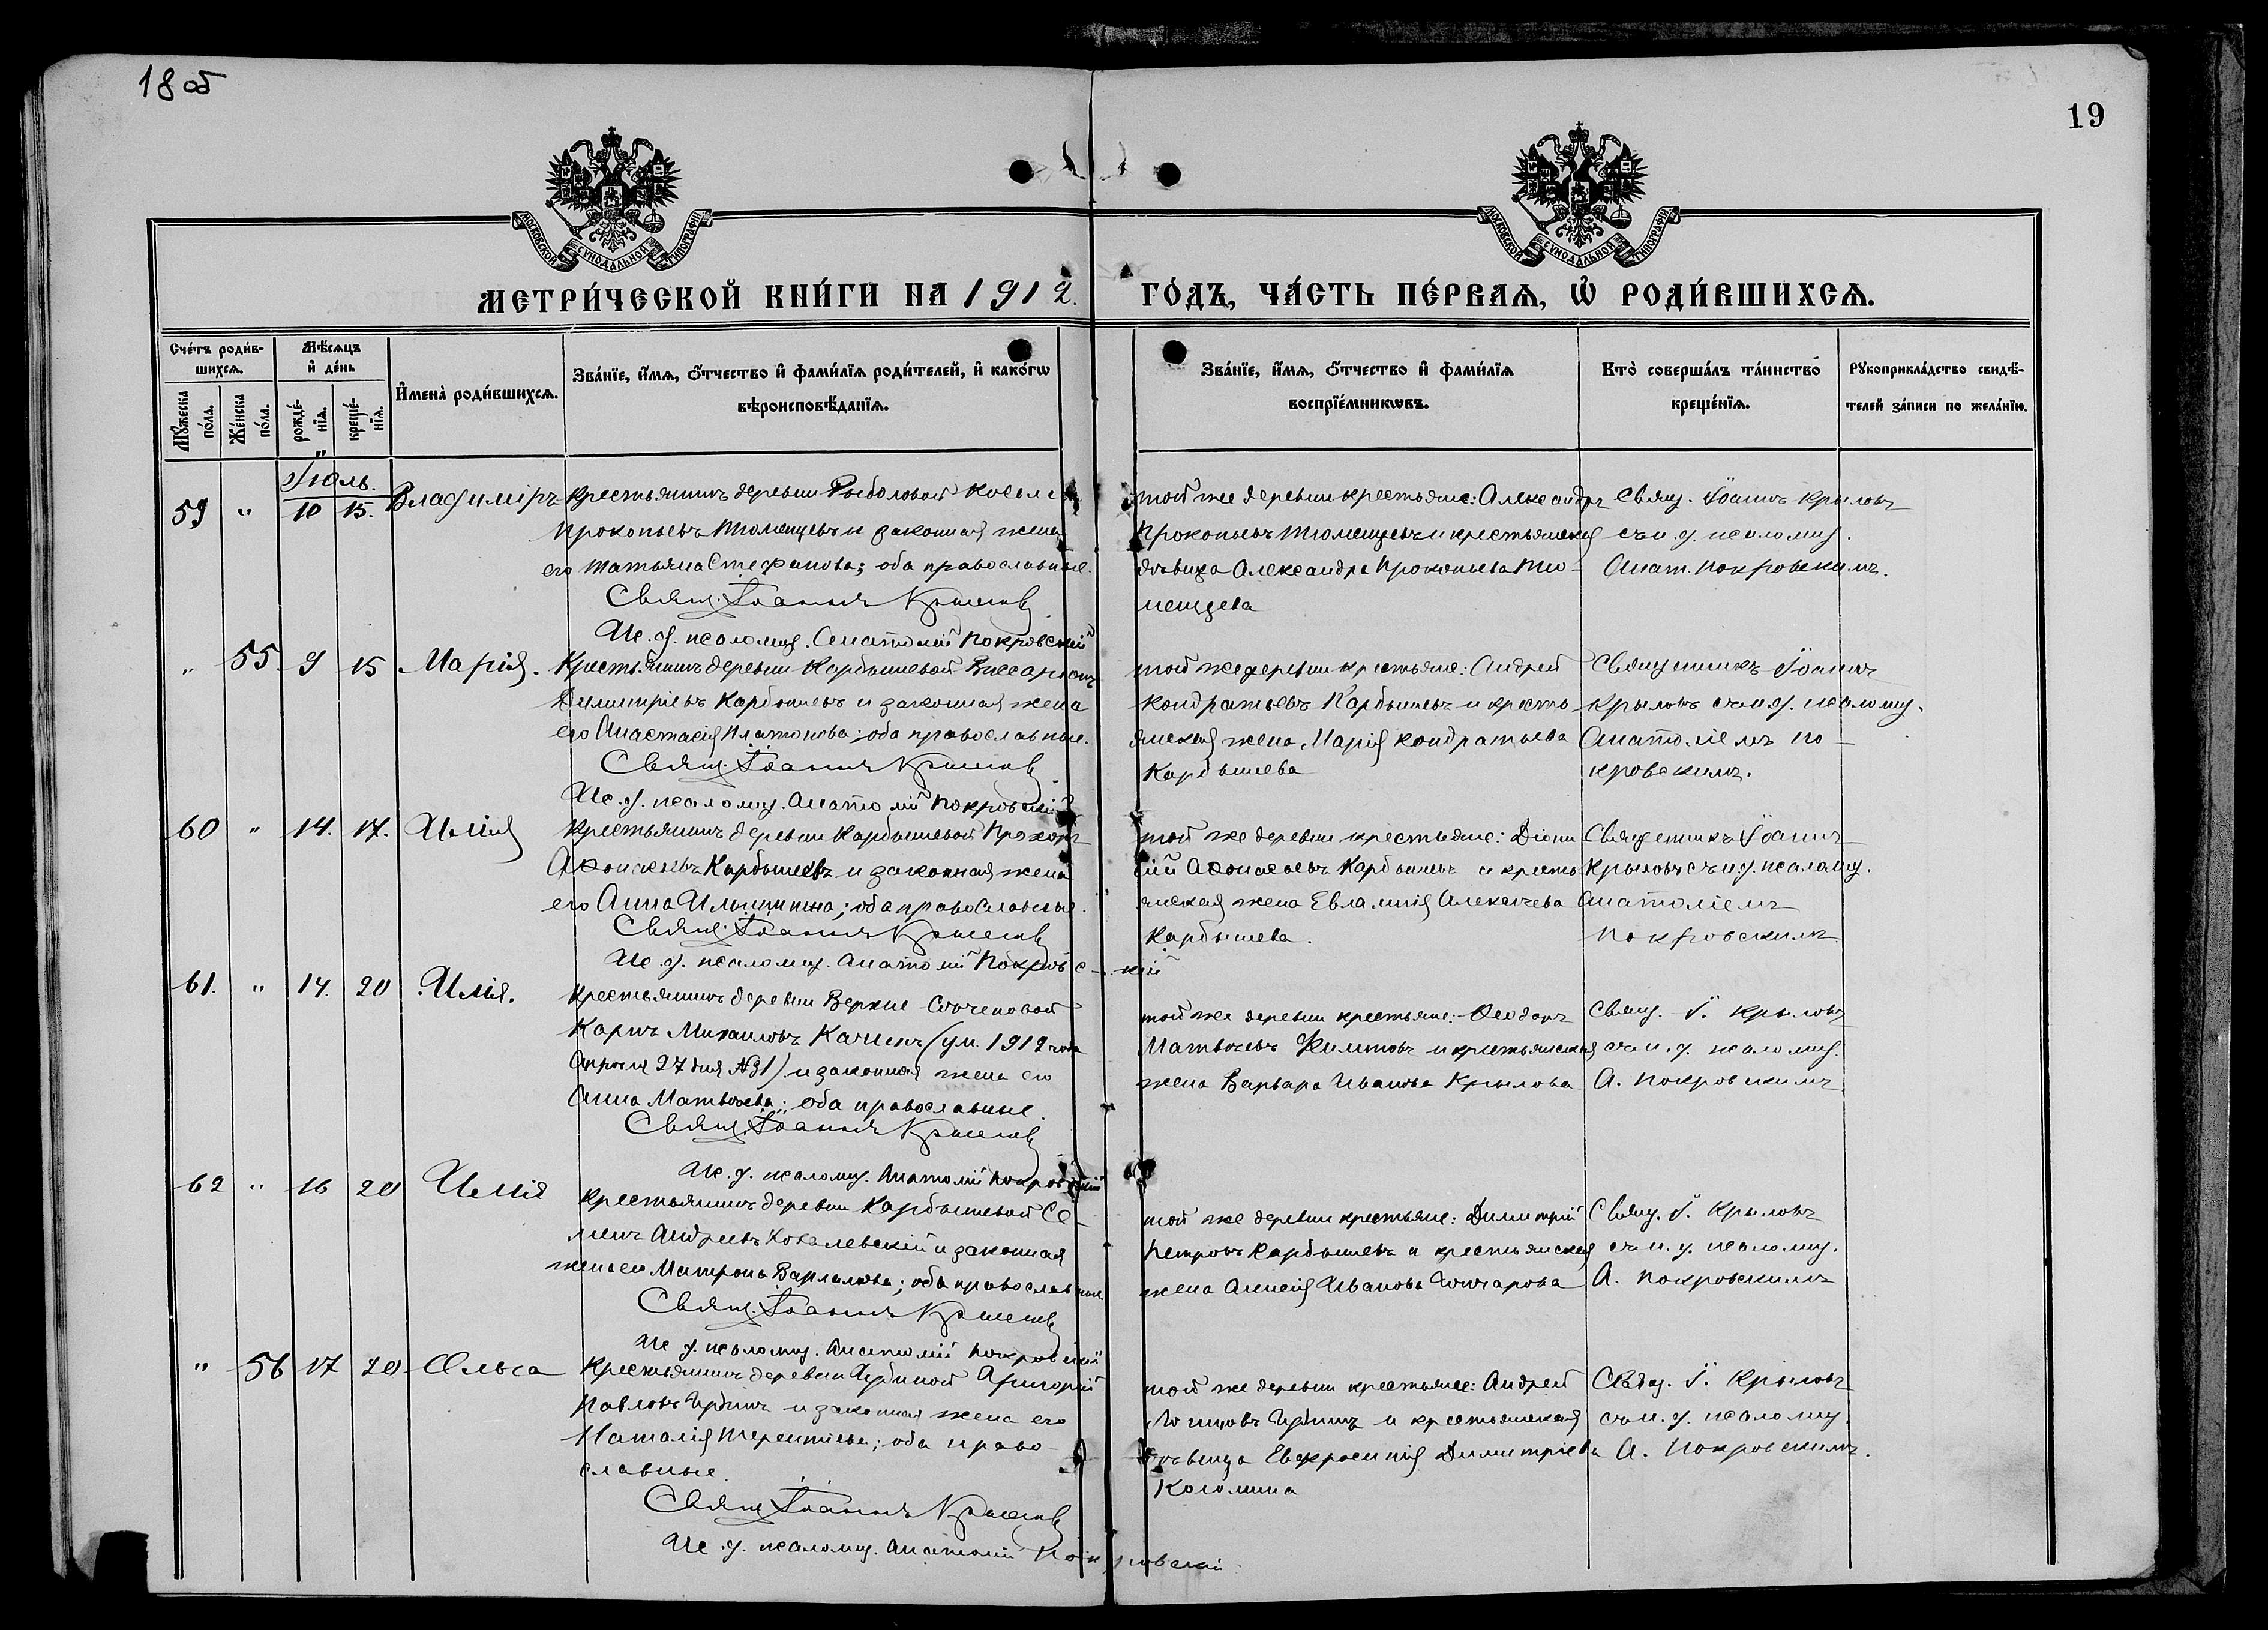 18 об
19
МОСКОВСКОЙ СУНОДАЛЬНОЙ ТИПОГРАФІИ
МОСКОВСКОЙ СУНОДАЛЬНОЙ ТИПОГРАФІИ
МЕТРИ́ЧЕСКОЙ КНИ́ГИ НА 1912. ГО́ДЪ, ЧА́СТЬ ПЕ́РВАѦ, Ѡ҆ РОДИ́ВШИХСѦ.
Сче́тъ роди́вшихсѧ.
Мѹ́жеска по́ла.
Же́нска по́ла.
Мѣ́сѧцъ и҆ де́нь
рожде́нїѧ.
креще́нїѧ.
И҆мена̀ роди́вшихсѧ.
Зва́нїе, и҆́мѧ, ѻ҆́тчество и҆ фами́лїѧ роди́телей, и҆ како́гѡ
вѣроисповѣ́данїѧ.
Зва́нїе, и҆́мѧ, ѻ҆́тчество и҆ фами́лїѧ
воспрїе́мникѡвъ.
Кто̀ соверша́лъ та́инство
креще́нїѧ.
Рѹкоприкла́дство свидѣ́телей за́писи по жела́нїю.
Іюль.
59 " 10 15. Владиміръ
крестьянинъ деревни Рыболовой
Прокопьевъ Тюменцевъ и законная жена
его Татьяна Стефанова; оба православные.
Свящ. Іоаннъ Крыловъ
Ис. д. псаломщ. Анатолій Покровскій
той же деревни крестьяне: Александръ
Прокопьевъ Тюменцевъ и крестьянская
дѣвица Александра Прокопьева Тю-
менцева
Свящ. Іоаннъ Крыловъ
съ и. д. псаломщ.
Анат. Покровскимъ.
" 55 9 15 Марія.
Крестьянинъ деревни Карбышевой Виссаріонъ
Димитріевъ Карбышевъ и законная жена
его Анастасія Платонова; оба православные.
Свящ. Іоаннъ Крыловъ
Ис. д. псаломщ. Анатолій Покровскій
той же деревни крестьяне: Андрей
Кондратьевъ Карбышевъ и кресть-
янская жена Марія Кондратьева
Карбышева
Священникъ Іоаннъ
Крыловъ съ и д. псаломщ.
Анатоліемъ По-
кровскимъ.
60 " 14. 17. Илія
крестьянинъ деревни Карбышевой Прохоръ
Аѳонасьевъ Карбышевъ и законная жена
его Анна; оба православные.
Свящ. Іоаннъ Крыловъ
Ис. д. псаломщ. Анатолій Покровс-кій
той же деревни крестьяне: Діони
сій Аѳонасьевъ Карбышевъ и кресть
янская жена Евлампія Алексѣева
Карбышева.
Священникъ Іоаннъ
Крыловъ съ и. д. псаломщ.
Анатоліемъ
Покровскимъ
61. " 14. 20 Илія.
крестьянинъ деревни Верхне-
Карпъ Михаиловъ (ум. 1912 года
Апрѣля 27 дня №31) и законная жена его
Анна Матвѣева; оба православные.
Свящ. Іоаннъ Крыловъ
Ис. д. псаломщ. Анатолій Покровскій
той же деревни крестьяне: Ѳеодоръ
Матвѣевъ и крестьянская
жена Варвара Иванова Крылова
Свящ. І. Крыловъ
съ и. д. псаломщ.
А. Покровскимъ
62 " 16 20 Илія
крестьянинъ деревни Карбышевой Се-
менъ Андреевъ Ковалевскій и законная
жена его Матрона Варламова; оба православные
Свящ. Іоаннъ Крыловъ
Ис. д. псаломщ. Анатолій Покровскій
той же деревни крестьяне: Димитрій
Петровъ Карбышевъ и крестьянская
жена Анисія Иванова Гончарова
Свящ. І. Крыловъ
съ и. д. псаломщ.
А. Покровскимъ
" 56 17 20 Ольга
Крестьянинъ деревни Григорій
Павловъ и законная жена его
Наталія Терентіева; оба право-
славные.
Свящ. Іоаннъ Крыловъ
Ис. д. псаломщ. Анатолій Покровскій
той же деревни крестьяне: Андрей
и крестьянская
дѣвица Евфросинія Димитріева
Коломина
Свящ. І. Крыловъ
съ и. д. псаломщ.
А. Покровскимъ.